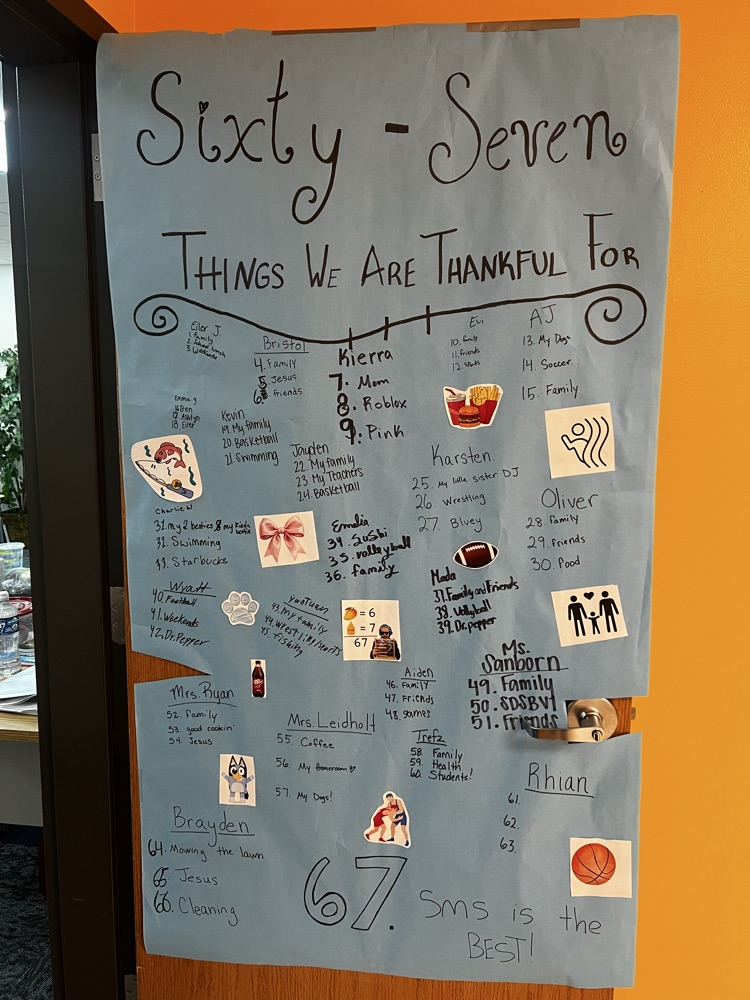 Sixty - Seven
Things We Are Thankful For
Eiler J.
1. Family
2. School lunch
3. Weekends
Bristol
4. Family
5. Jesus
6. friends
Kierra
7. Mom
8. Roblox
9. Pink
Eli
10. family
11. friends
12. Sports
AJ
13. My Dogs
14. Soccer
15. Family
Emma g
16. Ben
17. Ashtyn
18. Eiler
Kevin
19. My family
20. Basketball
21. Swimming
Jayden
22. My family
23. My Teachers
24. Basketball
Karsten
25. My little sister DJ
26. Wrestling
27. Bluey
Oliver
28. Family
29. friends
30. Food
Charlie W
31. my 2 besties & my kinda bestie
32. Swimming
33. Starbucks
Emalia
34. Sushi
35. volleyball
36. family
Mada
37. Family and Friends
38. Volleyball
39. Dr. pepper
Wyatt
40. Football
41. Weekends
42. Dr. Pepper
43. my family
45. fishing
= 6
= 7
67
Aiden
46. Family
47. Friends
48. games
Ms. Sanborn
49. Family
50. SDSBVI
51. Friends
Mrs. Ryan
52. Family
53. good cookin'
54. Jesus
Mrs. Leidholt
55. Coffee
56. My Homeroom
57. My Dogs!
Trefz
58. Family
59. Health
60. Students!
Rhian
61.
62.
63.
Brayden
64. Mowing the lawn
65. Jesus
66. Cleaning
67. SMS is the
BEST!